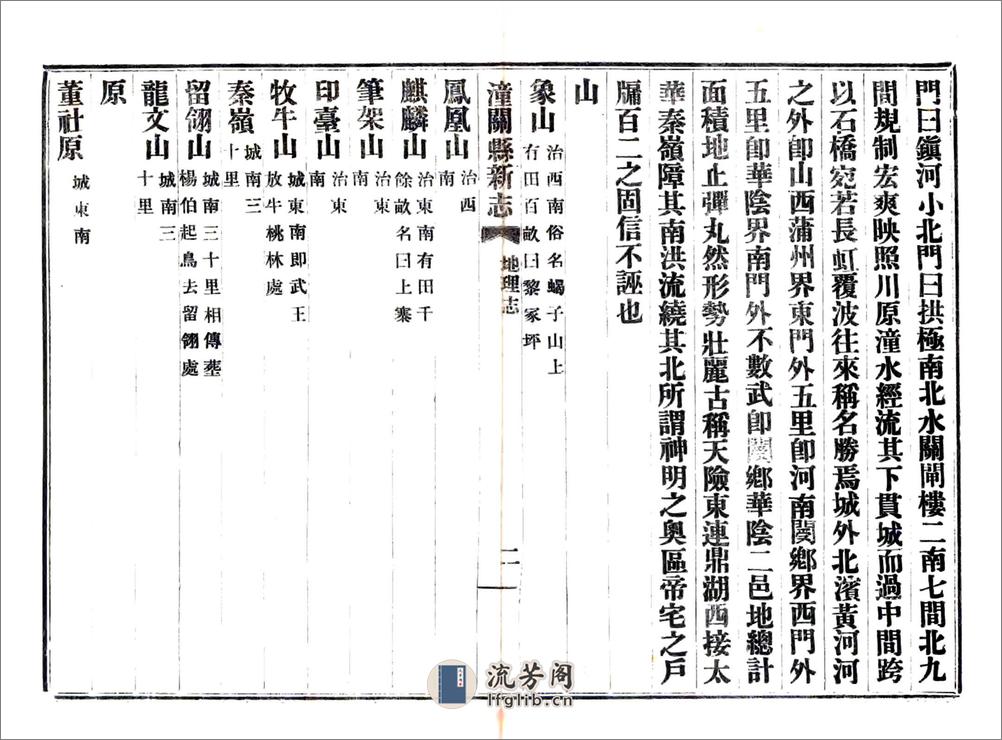 門曰鎭河小北門曰拱極南北水關閘樓二南七間北九
間規制宏爽映照川原潼水經流其下貫城而過中間跨
以石橋宛若長虹覆波往來稱名勝焉城外北濱黃河河
之外卽山西蒲州界東門外五里卽河南閿鄕界西門外
五里卽華陰界南門外不數武卽閿鄕華陰二邑地總計
面積地止彈丸然形勢壯麗古稱天險東連鼎湖西接太
華秦嶺障其南洪流繞其北所謂神明之奧區帝宅之戶
牖百二之固信不誣也
山
象山 治西南俗名蝎子山上
有田百畝曰黎冢坪
潼關縣新志 地理志 二
鳳凰山 治西
南
麒麟山 治東南有田千
餘畝名曰上寨
筆架山 治東
南
印臺山 治東
南
牧牛山 城東南即武王
放牛桃林處
秦嶺 城南三
十里
留翎山 城南三十里相傳葬
楊伯起鳥去留翎處
龍文山 城南三
十里
原
董社原 城東南
流芳阁
lfglib.cn